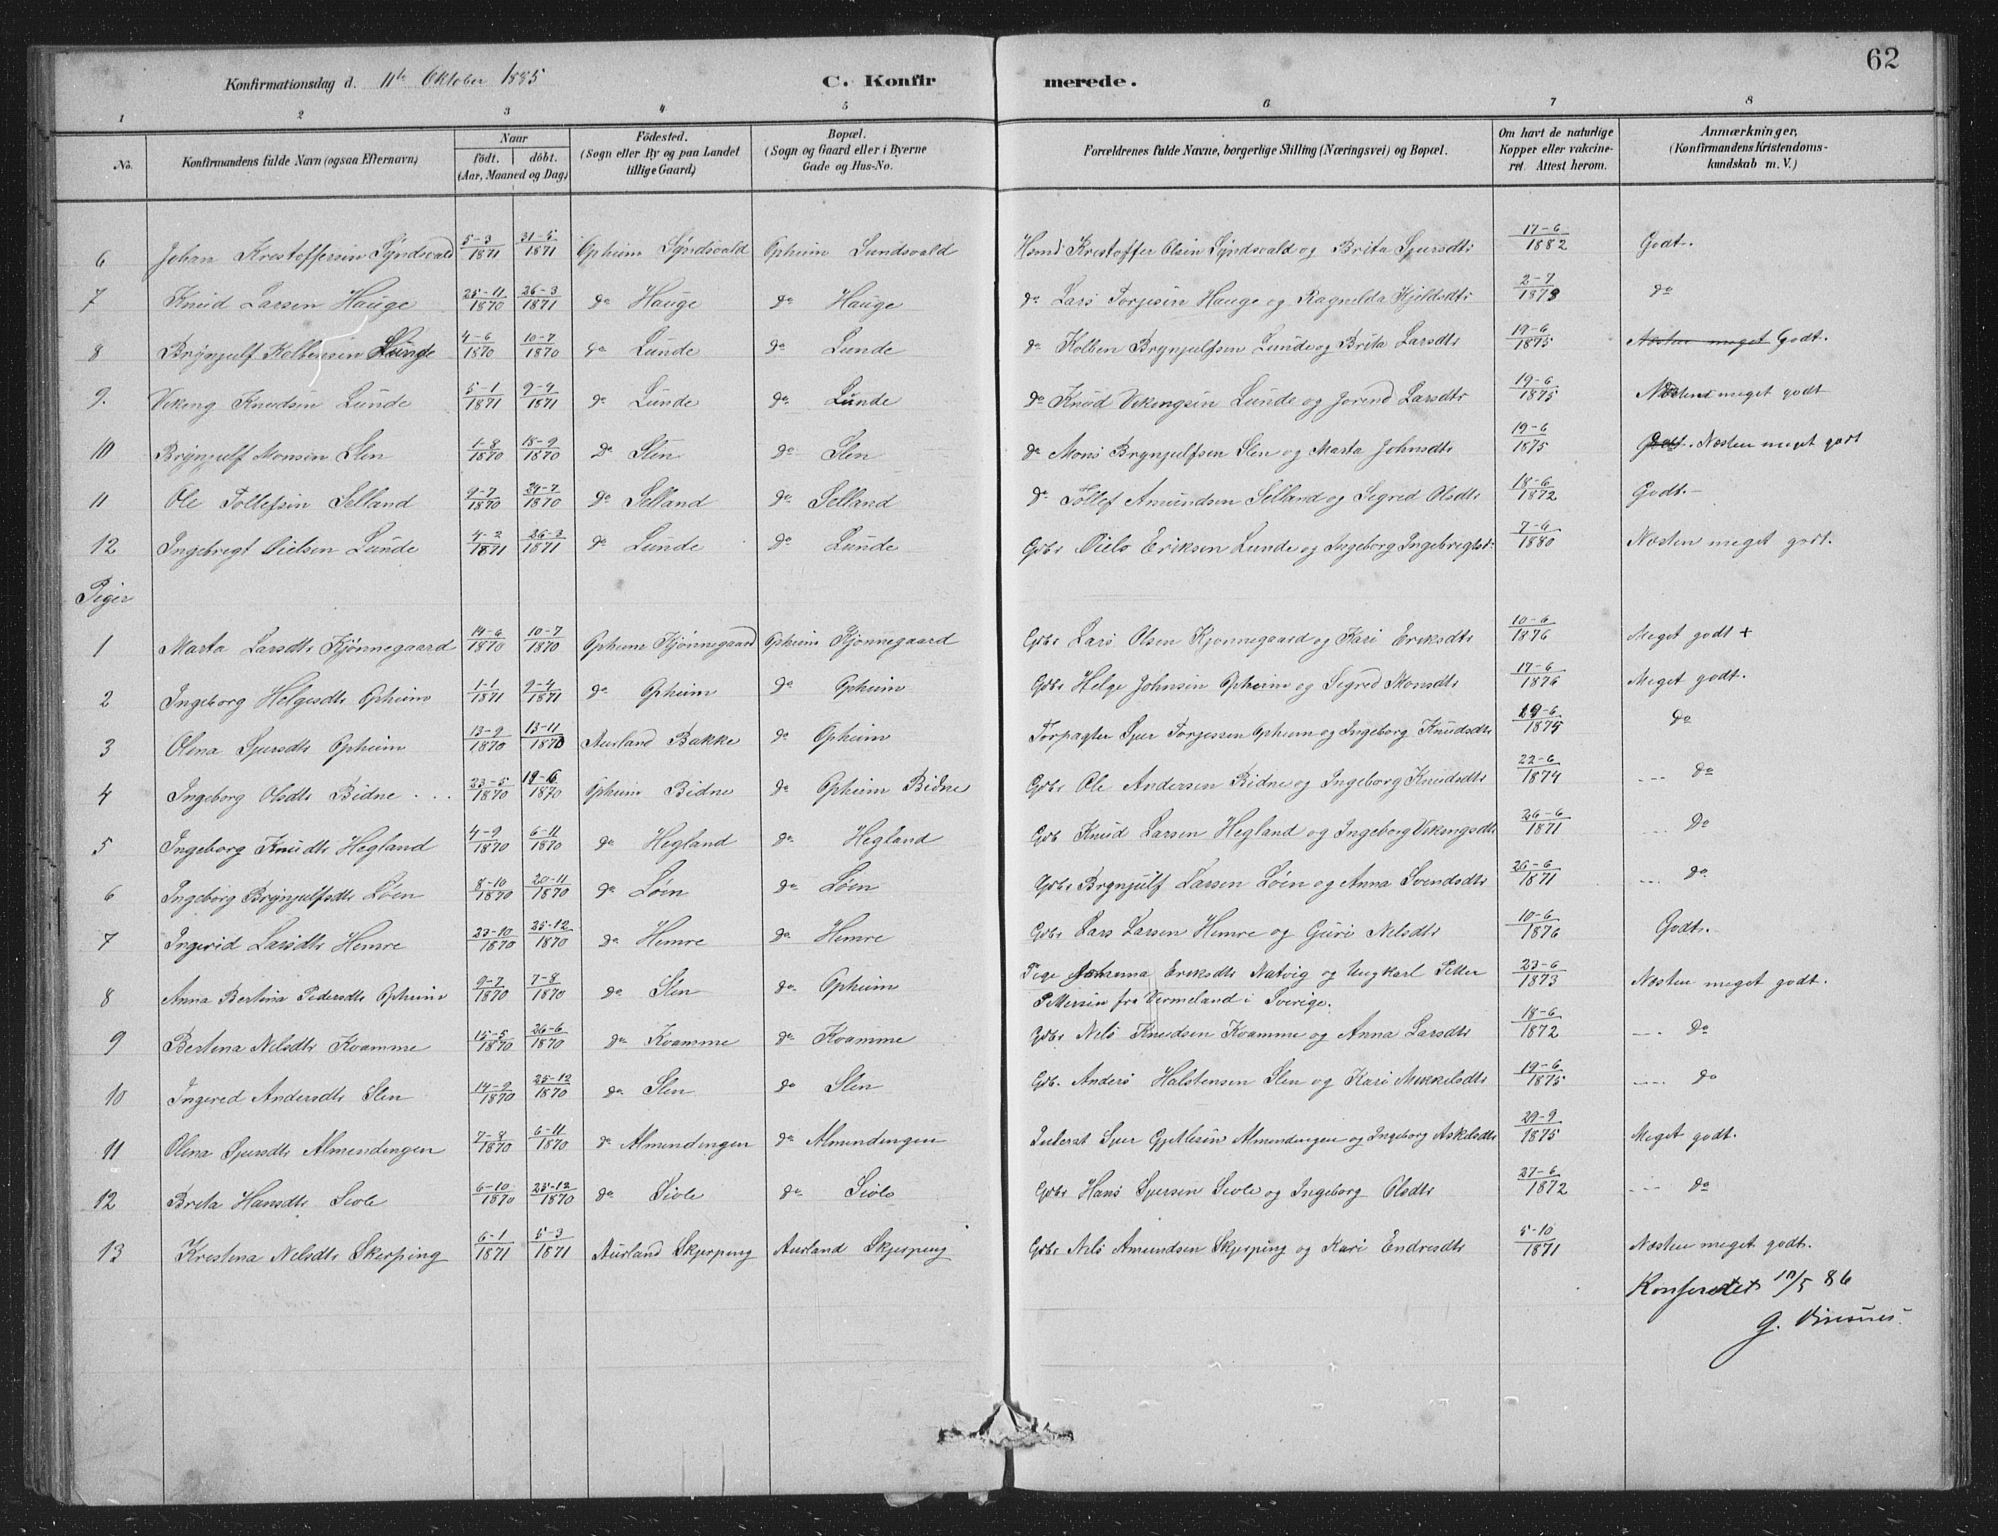 62
Konfirmationsdag d. 11te Oktober 1885 C. Konfir merede.
1 2 3 4 5 6 7 8
No. Konfirmandens fulde Navn (ogsaa Efternavn) Naar födt. döbt. (Aar, Maaned og Dag) Födested. (Sogn eller By og paa Landet tillige Gaard) Bopæl. (Sogn og Gaard eller i Byerne Gade og Hus-No. Forældrenes fulde Navne, borgerlige Stilling (Næringsvei) og Bopæl. Om havt de naturlige Kopper eller vakcineret. Attest herom. Anmærkninger, (Konfirmandens Kristendomskundskab m. V.)
6 Johan Krestoffersen Syndsvald 5-3 1871 31-5 1871 Opheim Syndsvald Opheim Sundsvald Hsmd Krestoffer Olsen Syndsvald og Brita Sjursdtr 17-6 1882 Godt.
7 Knud Larsen Hauge 25-11 1870 26-3 1871 do Hauge do Hauge do Lars Torjesen Hauge og Ragnilda Kjeldsdtr 2-7 1878 do
8 Brynjulf Kolbensen Lunde 4-6 1870 10-7 1870 do Lunde do Lunde do Kolben Brynjulfsen Lunde og Brita Larsdtr 19-6 1875 Næsten meget Godt.
9. Vikeng Knudsen Lunde 5-1 1871 9-4 1871 do Lunde do Lunde do Knud Vikengsen Lunde og Jorend Larsdtr 19-6 1875 Næsten meget godt
10 Brynjulf Monsen Slen 1-8 1870 18-9 1870 Do Slen do Slen do Mons Brynjulfsen Slen og Marta Johnsdtr 19-6 1875 Godt. Næsten meget godt
11 Ole Tollefsen Selland 9-7 1870 24-7 1870 do Selland do Selland do Tollef Amundsen Selland og Segred Olsdtr 18-6 1872 Godt.-
12 Ingebregt Nielsen Lunde 4-2 1871 26-3 1871 do Lunde do Lunde Gdbr Niels Eriksen Lunde og Ingeborg Ingebregtsd 7-6 1880 Næsten meget godt.
Piger
1 Marta Larsdtr Kjønnegaard 14-6 1870 10-7 1870 Opheim Kjønnegaard Opheim Kjønnegaard Gdbr Lars Olsen Kjønnegaard og Kari Eriksdtr 10-6 1876 Meget godt +
2 Ingeborg Helgesdtr Opheim 1-1 1871 9-4 1871 do Opheim do Opheim Gdbr Helge Johnsen Opheim og Segred Monsdtr 17-6 1876 Meget godt.
3 Olena Sjursdtr Opheim 13-9 1870 13-11 1870 Aurland Bakke do Opheim Forpagter Sjur Torjessen Opheim og Ingeborg Knudsdtr 19-6 1875 do
4 Ingeborg Olsdtr Bidne . . . 23-5 1870 19-6 1870 Opheim Bidne do Opheim Bidne Gdbr Ole Andersen Bidne og Ingeborg Knudsdtr 22-6 1874 --- do
5 Ingeborg Knudtr Hegland 4-9 1870 6-11 1870 do Hegland do Hegland Gdb Knud Larsen Hegland og Ingeborg Vikengsdtr 26-6 1871 --- do
6 Ingeborg Brynjulfsdtr Løen 8-10 1870 20-11 1870 do Løen do Løen Gdbr Brynjulf Larsen Løen og Anna Svendsdtr 26-6 1871 --- do
7 Ingerid Larsdtr Hemre 23-10 1870 25-12 1870 do Hemre do Hemre Gdbr Lars Larsen Hemre og Guri Nelsdtr 10-6 1876 Godt.
8 Anna Bertina Pedersdtr Opheim 9-7 1870 7-8 1870 do Slen do Opheim Pige Eriksdtr Natvig og Ungkarl Petter 23-6 1873 Næsten meget godt.
Pettersen fra Vermeland i Sverige.
9 Bertina Nelsdtr Kvamme 15-5 1870 26-6 1870 do Kvamme do Kvamme Gdbr Nels Knudsen Kvamme og Anna Larsdtr 18-6 1872 --- do
10 Ingered Andersdtr Slen 14-9 1870 25-12 1870 do Slen do Slen Gdb. Anders Halstensen Slen og Kari Mekkelsdtr 19-6 1875 --- do
11 Olena Sjursdtr Almendengen 7-8 1870 6-11 1870 do Almendengen do Almendengen Inderst Sjur Gjetlesen Almendengen og Ingeborg Askelsdtr 29-9 1875 Meget godt.
12 Breta Hansdtr Sivle 6-10 1870 25-12 1870 do Sivle do Sivle Gdbr Hans Sjursen Sivle og Ingeborg Olsdtr 27-6 1872 --- do
13 Krestena Nelsdtr Skerping 6-1 1871 5-3 1871 Aurland Skjerping Aurland Skjerping Gdbr Nels Amundsen Skjerping og Kari Endresdtr 5-10 1871 Næsten meget godt.
Konfereret 10/5 86
G.